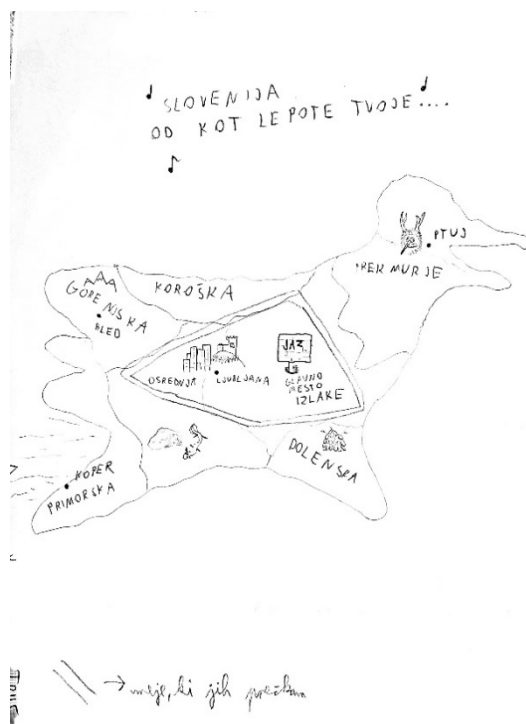 SLOVENIJA
OD KOT LEPOTE TVOJE....
PTUJ
PREKMURJE
KOROŠKA
GORENJSKA
BLED
JAZ
OSREDNJA
LJUBLJANA
GLAVNO
MESTO
IZLAKE
KOPER
PRIMORSKA
DOLENSKA
→ meje, ki jih prečkam